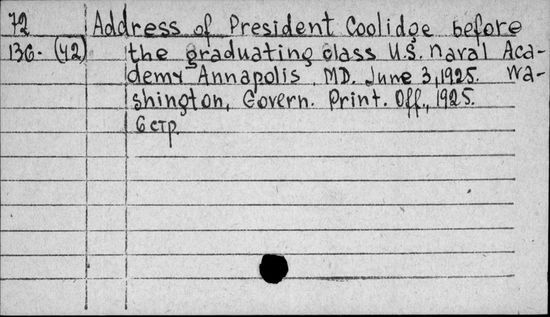 72 Address of President Coolidge before
136- (42) the graduating class U.S. Naval Aca-
demy Annapolis, MD. June 3, 1925. Wa-
shington, Govern. Print. Off., 1925.
6 стр.